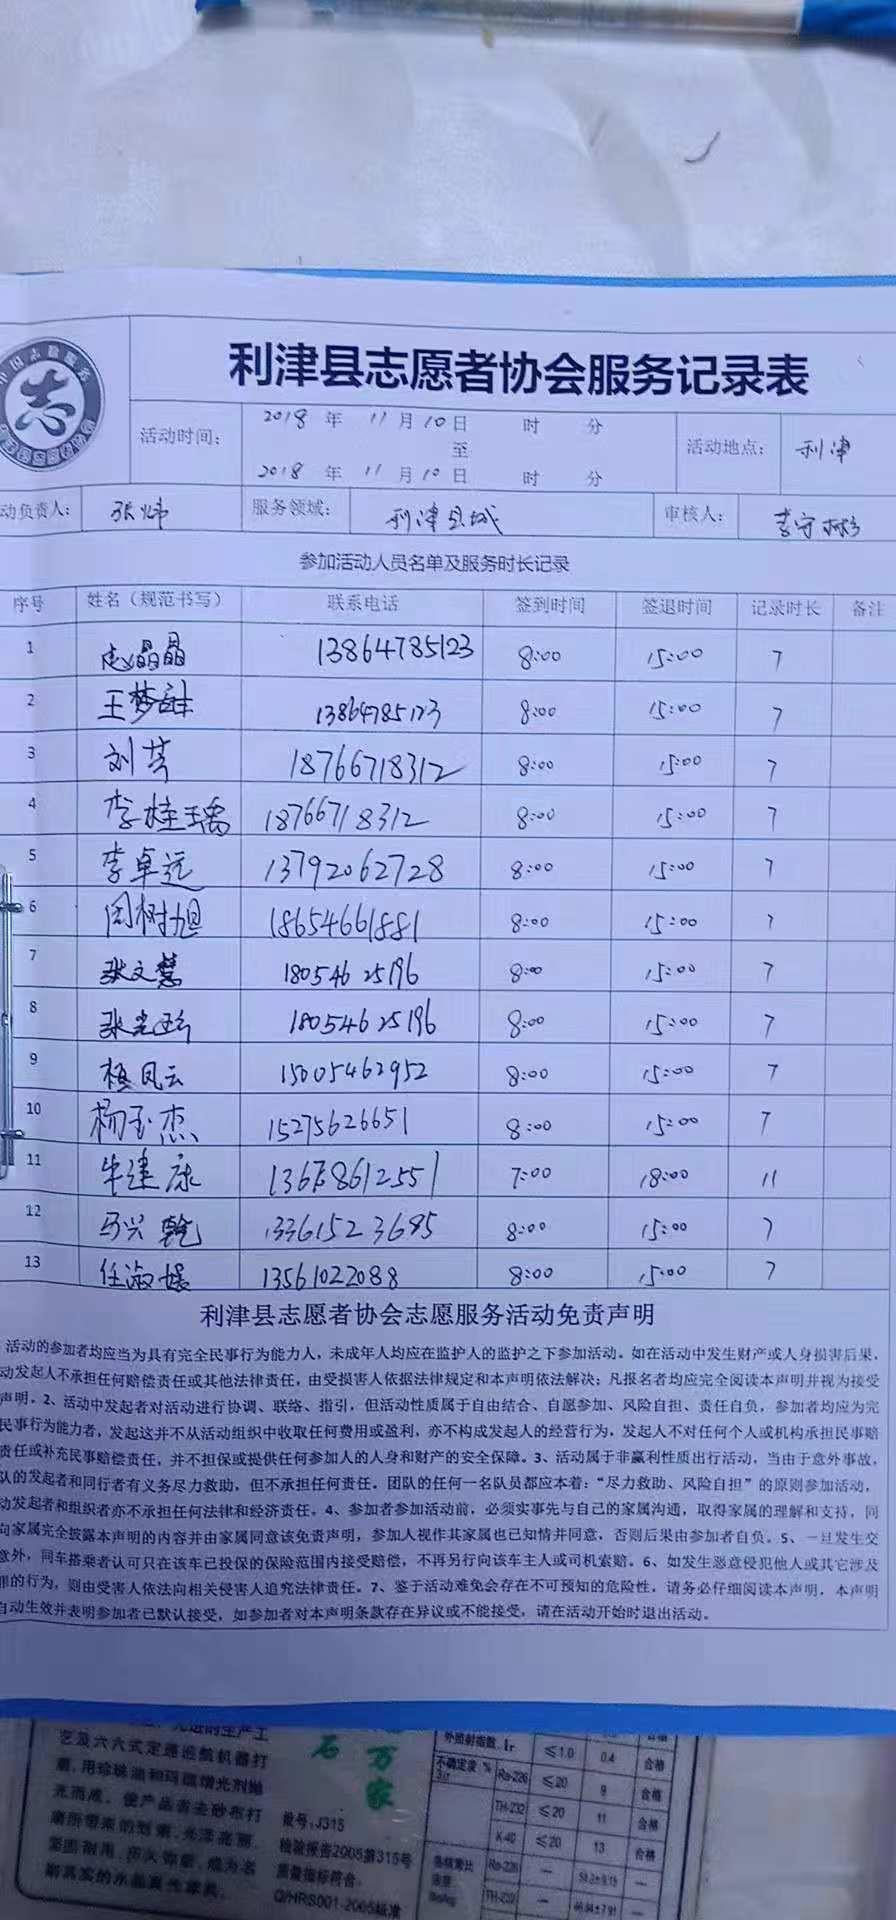 利津县志愿者协会服务记录表
活动时间: 2018 年 11 月 10 日 时 分
至
2018 年 11 月 10 日 时 分
活动地点: 利津
动负责人: 张炜 服务领域: 利津县城 审核人: 李守彬
参加活动人员名单及服务时长记录
序号 姓名（规范书写） 联系电话 签到时间 签退时间 记录时长 备注
1 赵晶晶 13864785123 8:00 15:00 7
2 王梦甜 13864785123 8:00 15:00 7
3 刘芹 18766718312 8:00 15:00 7
4 李桂瑀 18766718312 8:00 15:00 7
5 李卓远 13792062728 8:00 15:00 7
6 周树旭 18654661881 8:00 15:00 7
7 张文慧 18054625196 8:00 15:00 7
8 张 18054625196 8:00 15:00 7
9 凤云 15005462952 8:00 15:00 7
10 杨玉杰 15275626651 8:00 15:00 7
11 牛建康 7:00 18:00 11
12 马兴乾 13361523685 8:00 15:00 7
13 任淑媛 13561022088 8:00 15:00 7
利津县志愿者协会志愿服务活动免责声明
活动的参加者均应当为具有完全民事行为能力人，未成年人均应在监护人的监护之下参加活动。如在活动中发生财产或人身损害后果，
动发起人不承担任何赔偿责任或其他法律责任，由受损害人依据法律规定和本声明依法解决；凡报名者均应完全阅读本声明并视为接受
声明。2、活动中发起者对活动进行协调、联络、指引，但活动性质属于自由结合、自愿参加、风险自担、责任自负，参加者均应为完
民事行为能力者，发起这并不从活动组织中收取任何费用或盈利，亦不构成发起人的经营行为，发起人不对任何个人或机构承担民事赔
责任或补充民事赔偿责任，并不担保或提供任何参加人的人身和财产的安全保障。3、活动属于非赢利性质出行活动，当由于意外事故，
队的发起者和同行者有义务尽力救助，但不承担任何责任。团队的任何一名队员都应本着：“尽力救助、风险自担”的原则参加活动，
动发起者和组织者亦不承担任何法律和经济责任。4、参加者参加活动前，必须实事先与自己的家属沟通，取得家属的理解和支持，同
向家属完全披露本声明的内容并由家属同意该免责声明，参加人视作其家属也已知情并同意，否则后果由参加者自负。5、一旦发生交
意外，同车搭乘者认可只在该车已投保的保险范围内接受赔偿，不再另行向该车主人或司机索赔。6、如发生恶意侵犯他人或其它涉及
罪的行为，则由受害人依法向相关侵害人追究法律责任。7、鉴于活动难免会存在不可预知的危险性，请务必仔细阅读本声明，本声明
自动生效并表明参加者已默认接受，如参加者对本声明条款存在异议或不能接受，请在活动开始时退出活动。
艺及六六式定通巡航机器打
光而成。使产品省去砂布打
石 万家
批号:J315
检验报告2005第315号
质量指标符合:
Q/HRS001-2005标准
外照射指数.Ir ≤1.0 0.4 合格
不确定度 % Ra-226 ≤20 9 合格
TH-232 ≤20 11 合格
K-40 ≤20 13 合格
Ra-226 —
TH-232 —